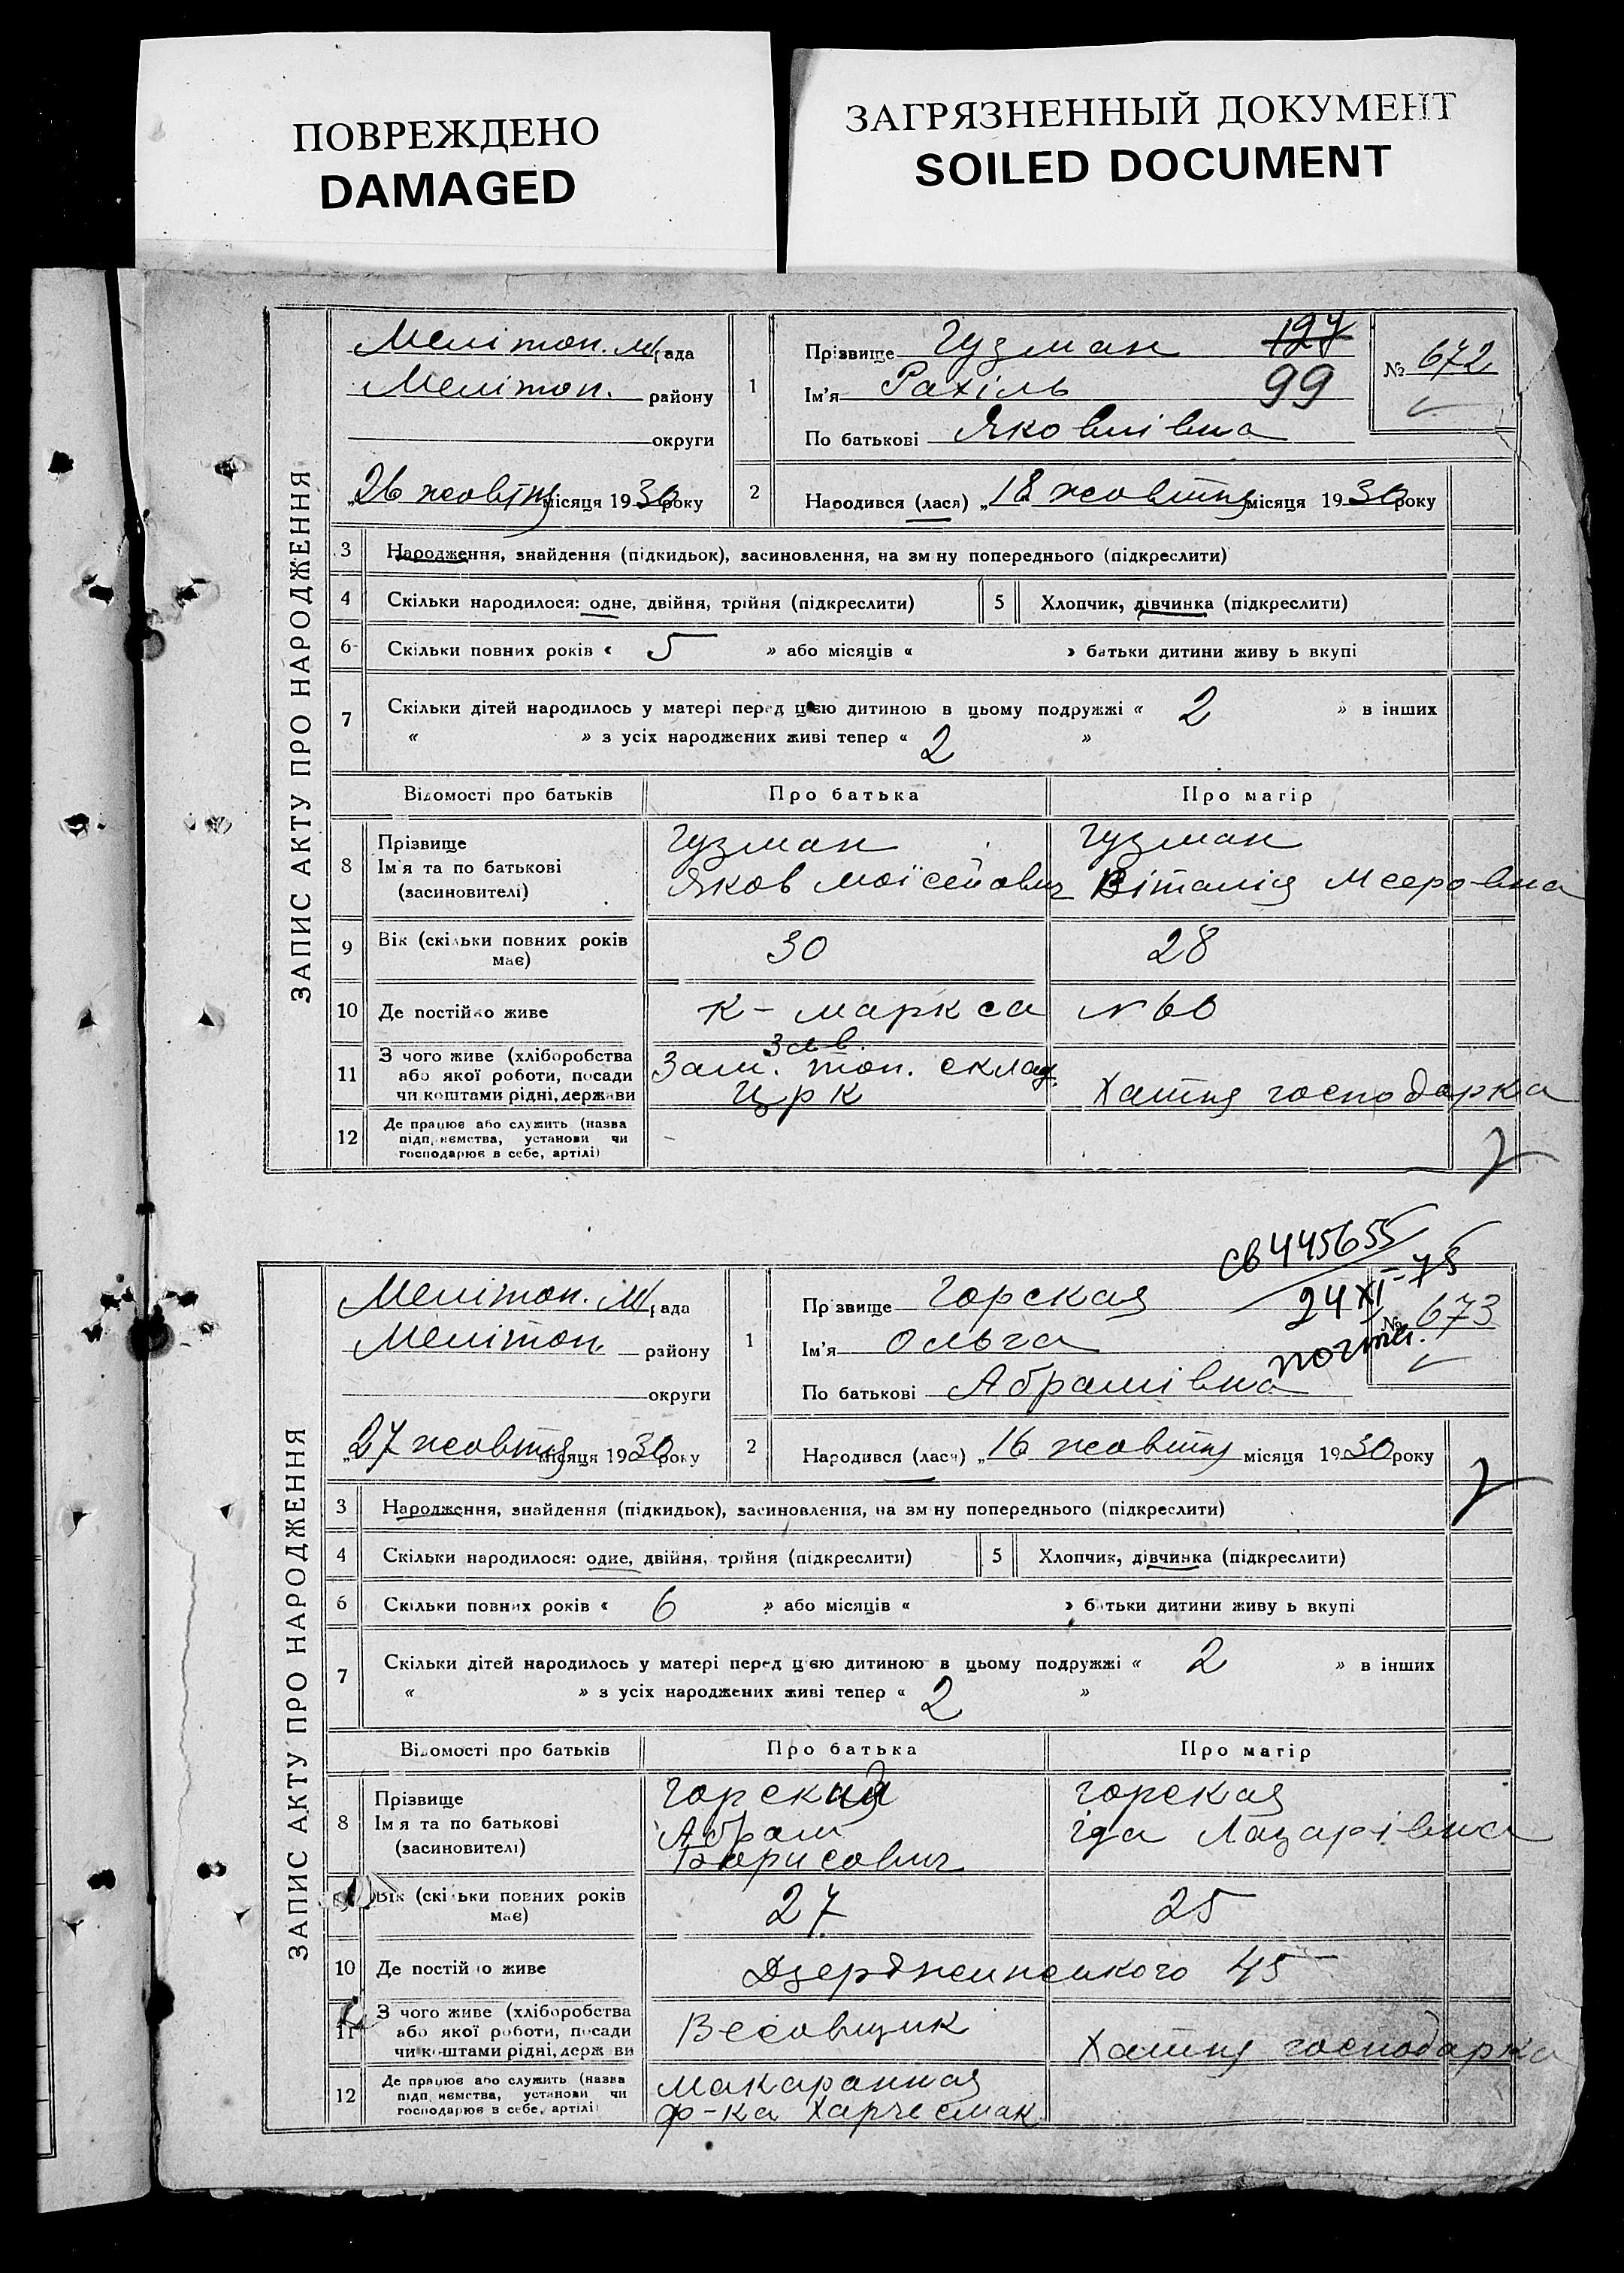 ПОВРЕЖДЕНО
DAMAGED
ЗАГРЯЗНЕННЫЙ ДОКУМЕНТ
SOILED DOCUMENT
ЗАПИС АКТУ ПРО НАРОДЖЕННЯ
Мелітоп. М рада
Мелітоп. району
округи
„26 жовтня місяця 1930 року
1
Прізвище Гузман 127
Ім'я Рахіль 99
По батькові Яковлівна
№ 672
2 Народився (лася) „18 жовтня місяця 1930 року
3 Народження, знайдення (підкидьок), засиновлення, на зміну попереднього (підкреслити)
4 Скільки народилося: одне, двійня, трійня (підкреслити) 5 Хлопчик, дівчинка (підкреслити)
6 Скільки повних років « 5 » або місяців « » батьки дитини живу ь вкупі
7 Скільки дітей народилось у матері перед цією дитиною в цьому подружжі « 2 » в інших
« » з усіх народжених живі тепер « 2 »
Відомості про батьків Про батька Про матір
8 Прізвище Гузман Гузман
Ім'я та по батькові Яков Моїсейович Віталія Мееровна
(засиновителі)
9 Вік (скільки повних років має) 30 28
10 Де постійно живе К-маркса №60
11 З чого живе (хліборобства або якої роботи, посади чи коштами рідні, держави
Зав.
Зам. топ. склад.
ЦРК
Хатня господарка
12 Де працює або служить (назва підприємства, установи чи господарює в себе, артілі)
св 445655
24 XI-75
почта.
ЗАПИС АКТУ ПРО НАРОДЖЕННЯ
Мелітоп. М рада
Мелітоп. району
округи
„27 жовтня місяця 1930 року
1
Прізвище Горская
Ім'я Ольга
По батькові Абрамівна
№ 673
2 Народився (лася) „16 жовтня місяця 1930 року
3 Народження, знайдення (підкидьок), засиновлення, на зміну попереднього (підкреслити)
4 Скільки народилося: одне, двійня, трійня (підкреслити) 5 Хлопчик, дівчинка (підкреслити)
6 Скільки повних років « 6 » або місяців « » батьки дитини живу ь вкупі
7 Скільки дітей народилось у матері перед цією дитиною в цьому подружжі « 2 » в інших
« » з усіх народжених живі тепер « 2 »
Відомості про батьків Про батька Про матір
8 Прізвище Горский Горская
Ім'я та по батькові Абрам Іда Лазарівна
(засиновителі) Борисович
9 Вік (скільки повних років має) 27 25
10 Де постійно живе Дзердженнського 45
11 З чого живе (хліборобства або якої роботи, посади чи коштами рідні, держави
Весовщик
Хатня господарка
12 Де працює або служить (назва підприємства, установи чи господарює в себе, артілі)
Макаранная
ф-ка Харчесмак